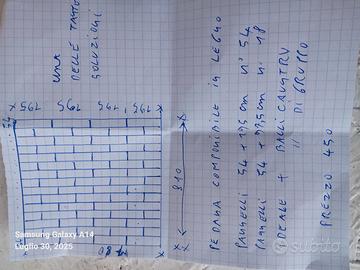 UNA
DELLE TANTE
SOLUZIONI
195 195 195 195
54
810
80
PEDANA COMPONIBILE IN LEGNO
PANNELLI 54 x 195 cm n° 54
PANNELLI 54 x 97,5 cm n. 18
IDEALE X BALLI COUNTRY
" DI GRUPPO
PREZZO 450
Samsung Galaxy A14
Luglio 30, 2025
subito